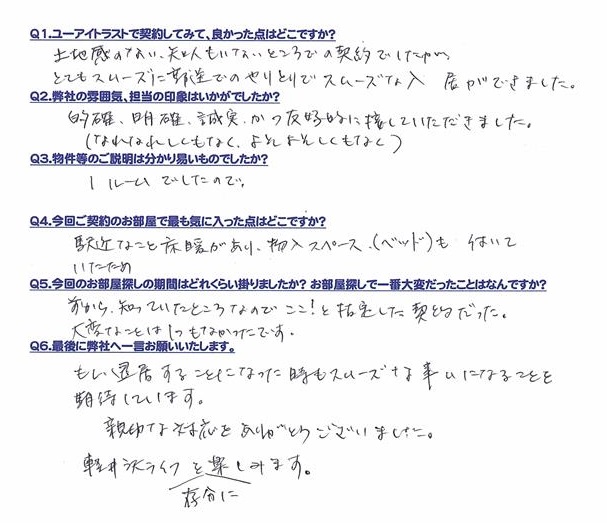 Q1.ユーアイトラストで契約してみて、良かった点はどこですか?
土地感のない、知人もいないところでの契約でしたが、
とてもスムーズに郵送でのやりとりでスムーズな入居ができました。
Q2.弊社の雰囲気、担当の印象はいかがでしたか?
的確、明確、誠実、かつ友好的に接していただきました。
(なれなれしくもなく、よそよそしくもなく)
Q3.物件等のご説明は分かり易いものでしたか?
1ルームでしたので。
Q4.今回ご契約のお部屋で最も気に入った点はどこですか?
駅近なこと床暖があり、物入スペース、(ベッド)も付いて
いたため
Q5.今回のお部屋探しの期間はどれくらい掛りましたか? お部屋探しで一番大変だったことはなんですか?
前から、知っていたところなのでここ!と指定した契約だった。
大変なことは1つもなかったです。
Q6.最後に弊社へ一言お願いいたします。
もし退居することになった時もスムーズな事いになることを
期待しています。
親切な対応をありがとうございました。
軽井沢ライフを楽しみます。
存分に